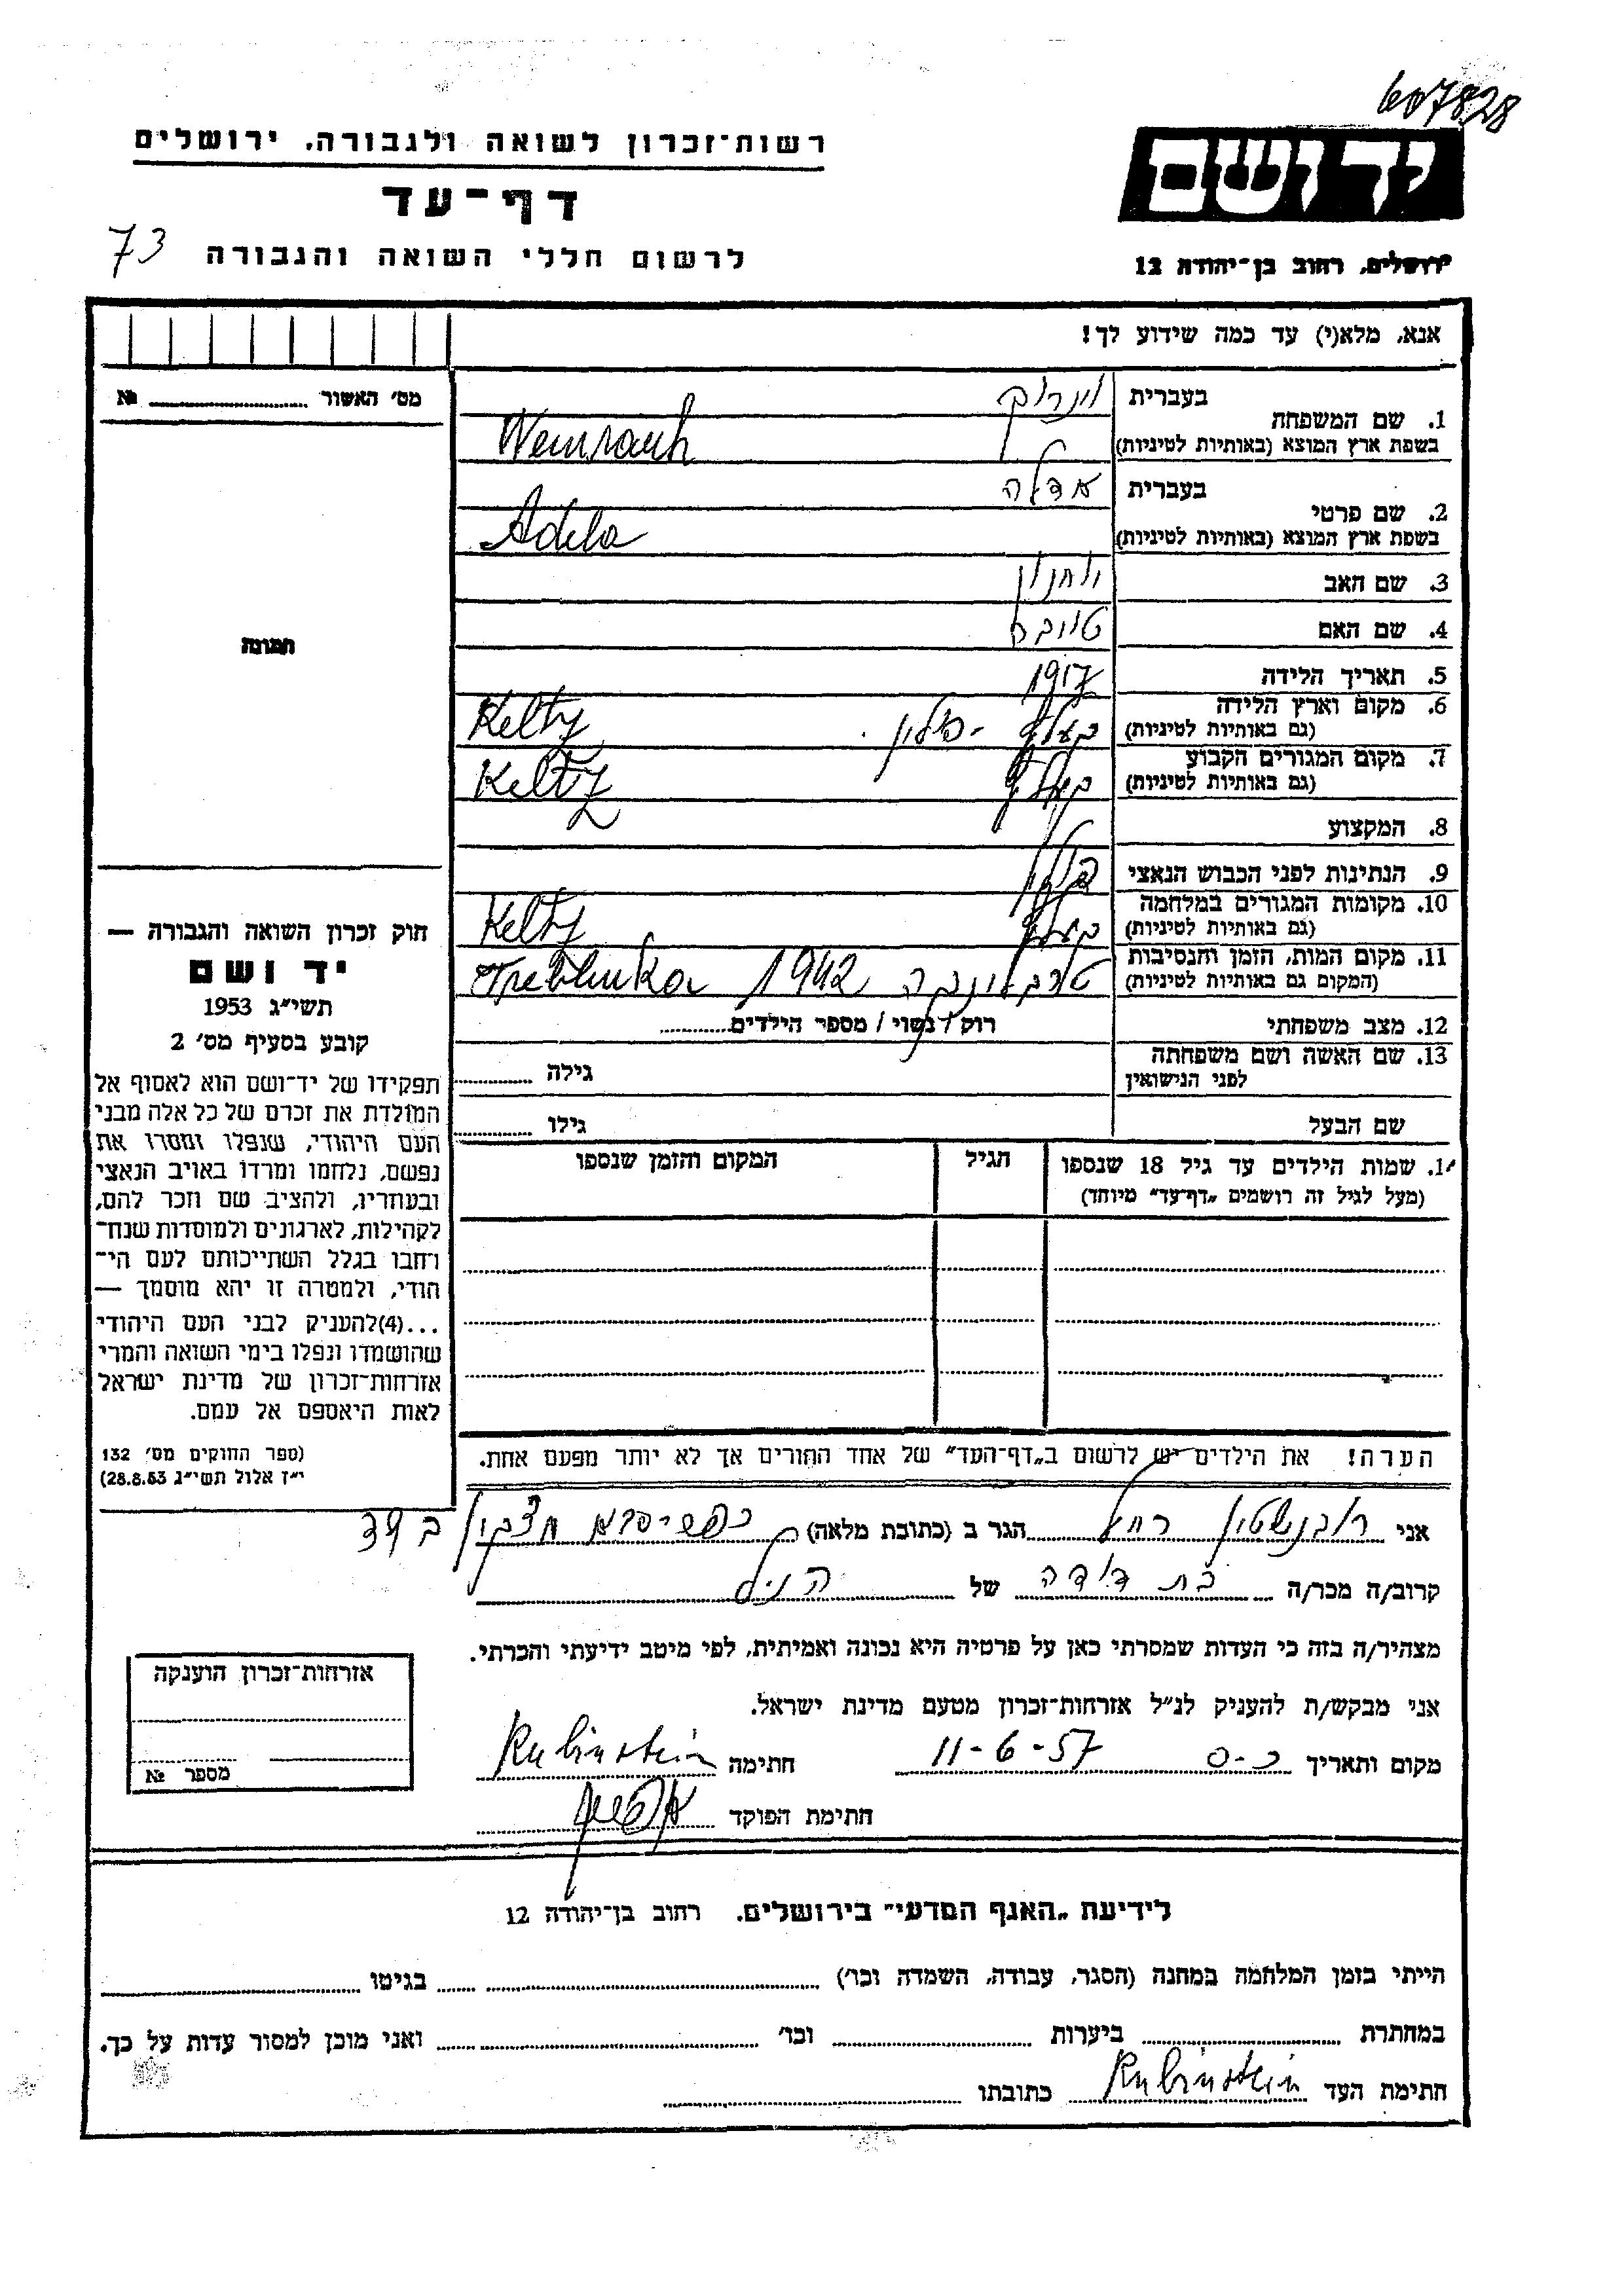 607828
רשות־זכרון לשואה ולגבורה, ירושלים
יד ושם
דף־עד
לרשום חללי השואה והגבורה
73
ירושלים, רחוב בן־יהודה 12
אנא, מלא(י) עד כמה שידוע לך!
מס׳ האשור № 
תמונה
1. שם המשפחה
בעברית
בשפת ארץ המוצא (באותיות לטיניות)
Weinrauh
2. שם פרטי
בעברית אדלה
בשפת ארץ המוצא (באותיות לטיניות) Adela
3. שם האב
4. שם האם טובה
5. תאריך הלידה 1917
6. מקום וארץ הלידה
(גם באותיות לטיניות) קעלץ - פולין. Keltz
7. מקום המגורים הקבוע
(גם באותיות לטיניות) קעלץ Keltz
8. המקצוע
9. הנתינות לפני הכבוש הנאצי פולין
10. מקומות המגורים במלחמה
(גם באותיות לטיניות) קעלץ Keltz
11. מקום המות, הזמן והנסיבות
(המקום גם באותיות לטיניות) טרבלינקה 1942 Treblinka
12. מצב משפחתי רוק / נשוי / מספר הילדים
13. שם האשה ושם משפחתה
לפני הנישואין
גילה
שם הבעל גילו
14. שמות הילדים עד גיל 18 שנספו
(מעל לגיל זה רושמים „דף־עד״ מיוחד)
הגיל
המקום והזמן שנספו
הערה! את הילדים יש לרשום ב„דף־העד״ של אחד ההורים אך לא יותר מפעם אחת.
חוק זכרון השואה והגבורה —
יד ושם
תשי״ג 1953
קובע בסעיף מס׳ 2
תפקידו של יד־ושם הוא לאסוף אל
המולדת את זכרם של כל אלה מבני
העם היהודי, שנפלו ומסרו את
נפשם, נלחמו ומרדו באויב הנאצי
ובעוזריו, ולהציב שם וזכר להם,
לקהילות, לארגונים ולמוסדות שנח־
רבו בגלל השתייכותם לעם הי־
הודי, ולמטרה זו יהא מוסמך —
...(4) להעניק לבני העם היהודי
שהושמדו ונפלו בימי השואה והמרי
אזרחות־זכרון של מדינת ישראל
לאות היאספם אל עמם.
(ספר החוקים מס׳ 132
י״ז אלול תשי״ג 28.8.53)
אני רובנשטין רחל הגר ב (כתובת מלאה)
קרוב/ה מכר/ה בת דודה של הנ״ל
מצהיר/ה בזה כי העדות שמסרתי כאן על פרטיה היא נכונה ואמיתית, לפי מיטב ידיעתי והכרתי.
אני מבקש/ת להעניק לנ״ל אזרחות־זכרון מטעם מדינת ישראל.
מקום ותאריך כ-ס 11-6-57 חתימה Rubinstein
חתימת הפוקד
אזרחות־זכרון הוענקה
מספר №
לידיעת „האגף המדעי״ בירושלים. רחוב בן־יהודה 12
הייתי בזמן המלחמה במחנה (הסגר, עבודה, השמדה וכו׳) בגיטו
במחתרת ביערות וכו׳ ואני מוכן למסור עדות על כך.
חתימת העד Rubinstein כתובתו